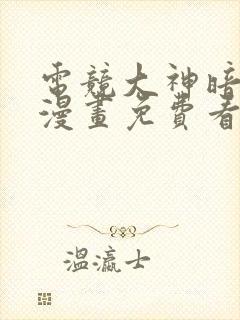 電競大神暗
漫畫免費看
溫瀛士